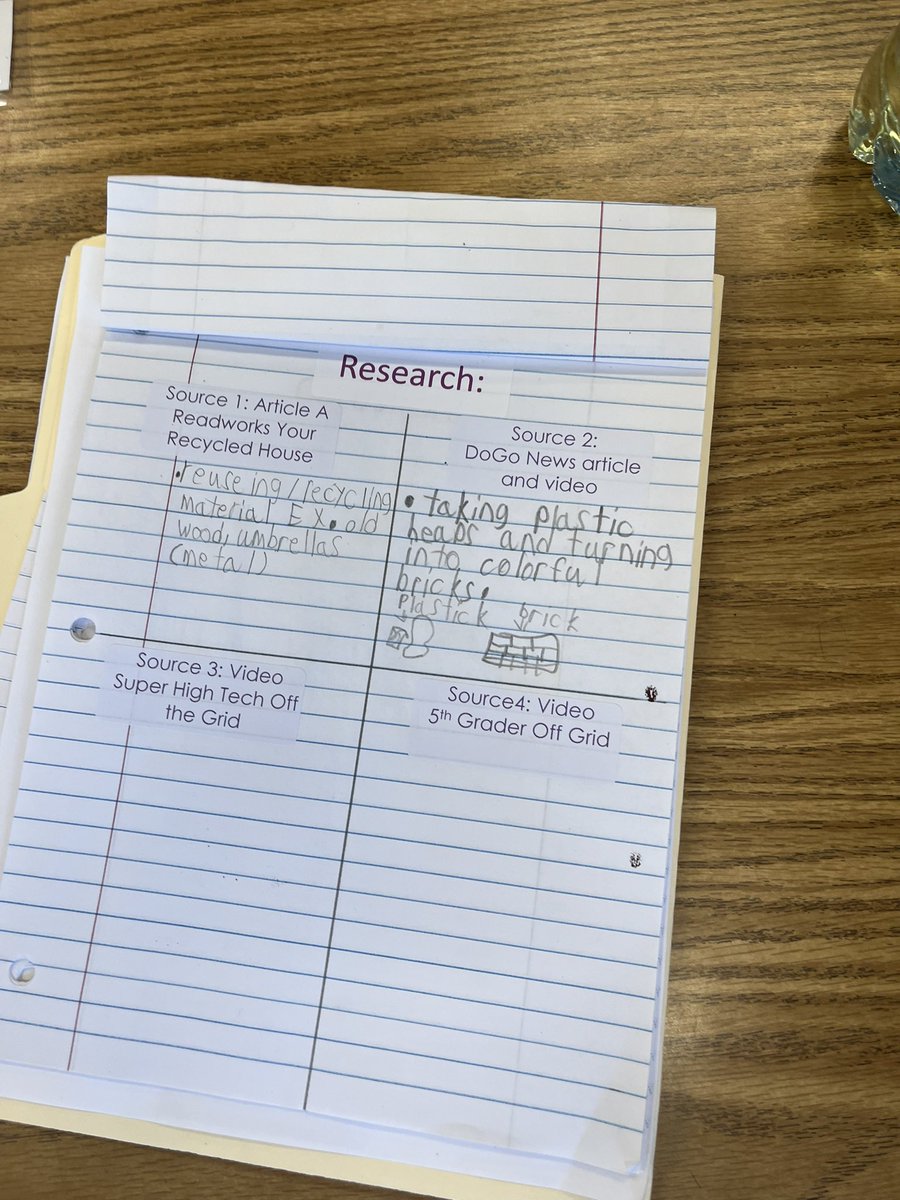 Research:
Source 1: Article A
Readworks Your
Recycled House
• reuseing/recycling
material EX. old
wood, umbrellas
(metal)
Source 2:
DoGo News article
and video
• taking plastic
heaps and turning
into colorful
bricks.
plastick brick
Source 3: Video
Super High Tech Off
the Grid
Source4: Video
5th Grader Off Grid